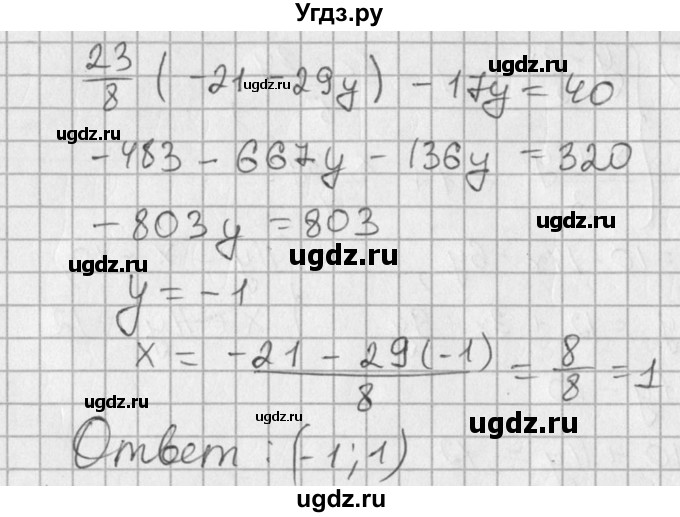 Угдз.ру
23/8 ( -21 - 29y ) - 17y = 40
-483 - 667y - 136y = 320
-803y = 803
y = -1
x = (-21 - 29(-1))/8 = 8/8 = 1
Ответ : (-1 ; 1)
ugdz.ru
ugdz.ru
ugdz.ru
ugdz.ru
ugdz.ru
ugdz.ru
ugdz.ru
ugdz.ru
ugdz.ru
ugdz.ru
ugdz.ru